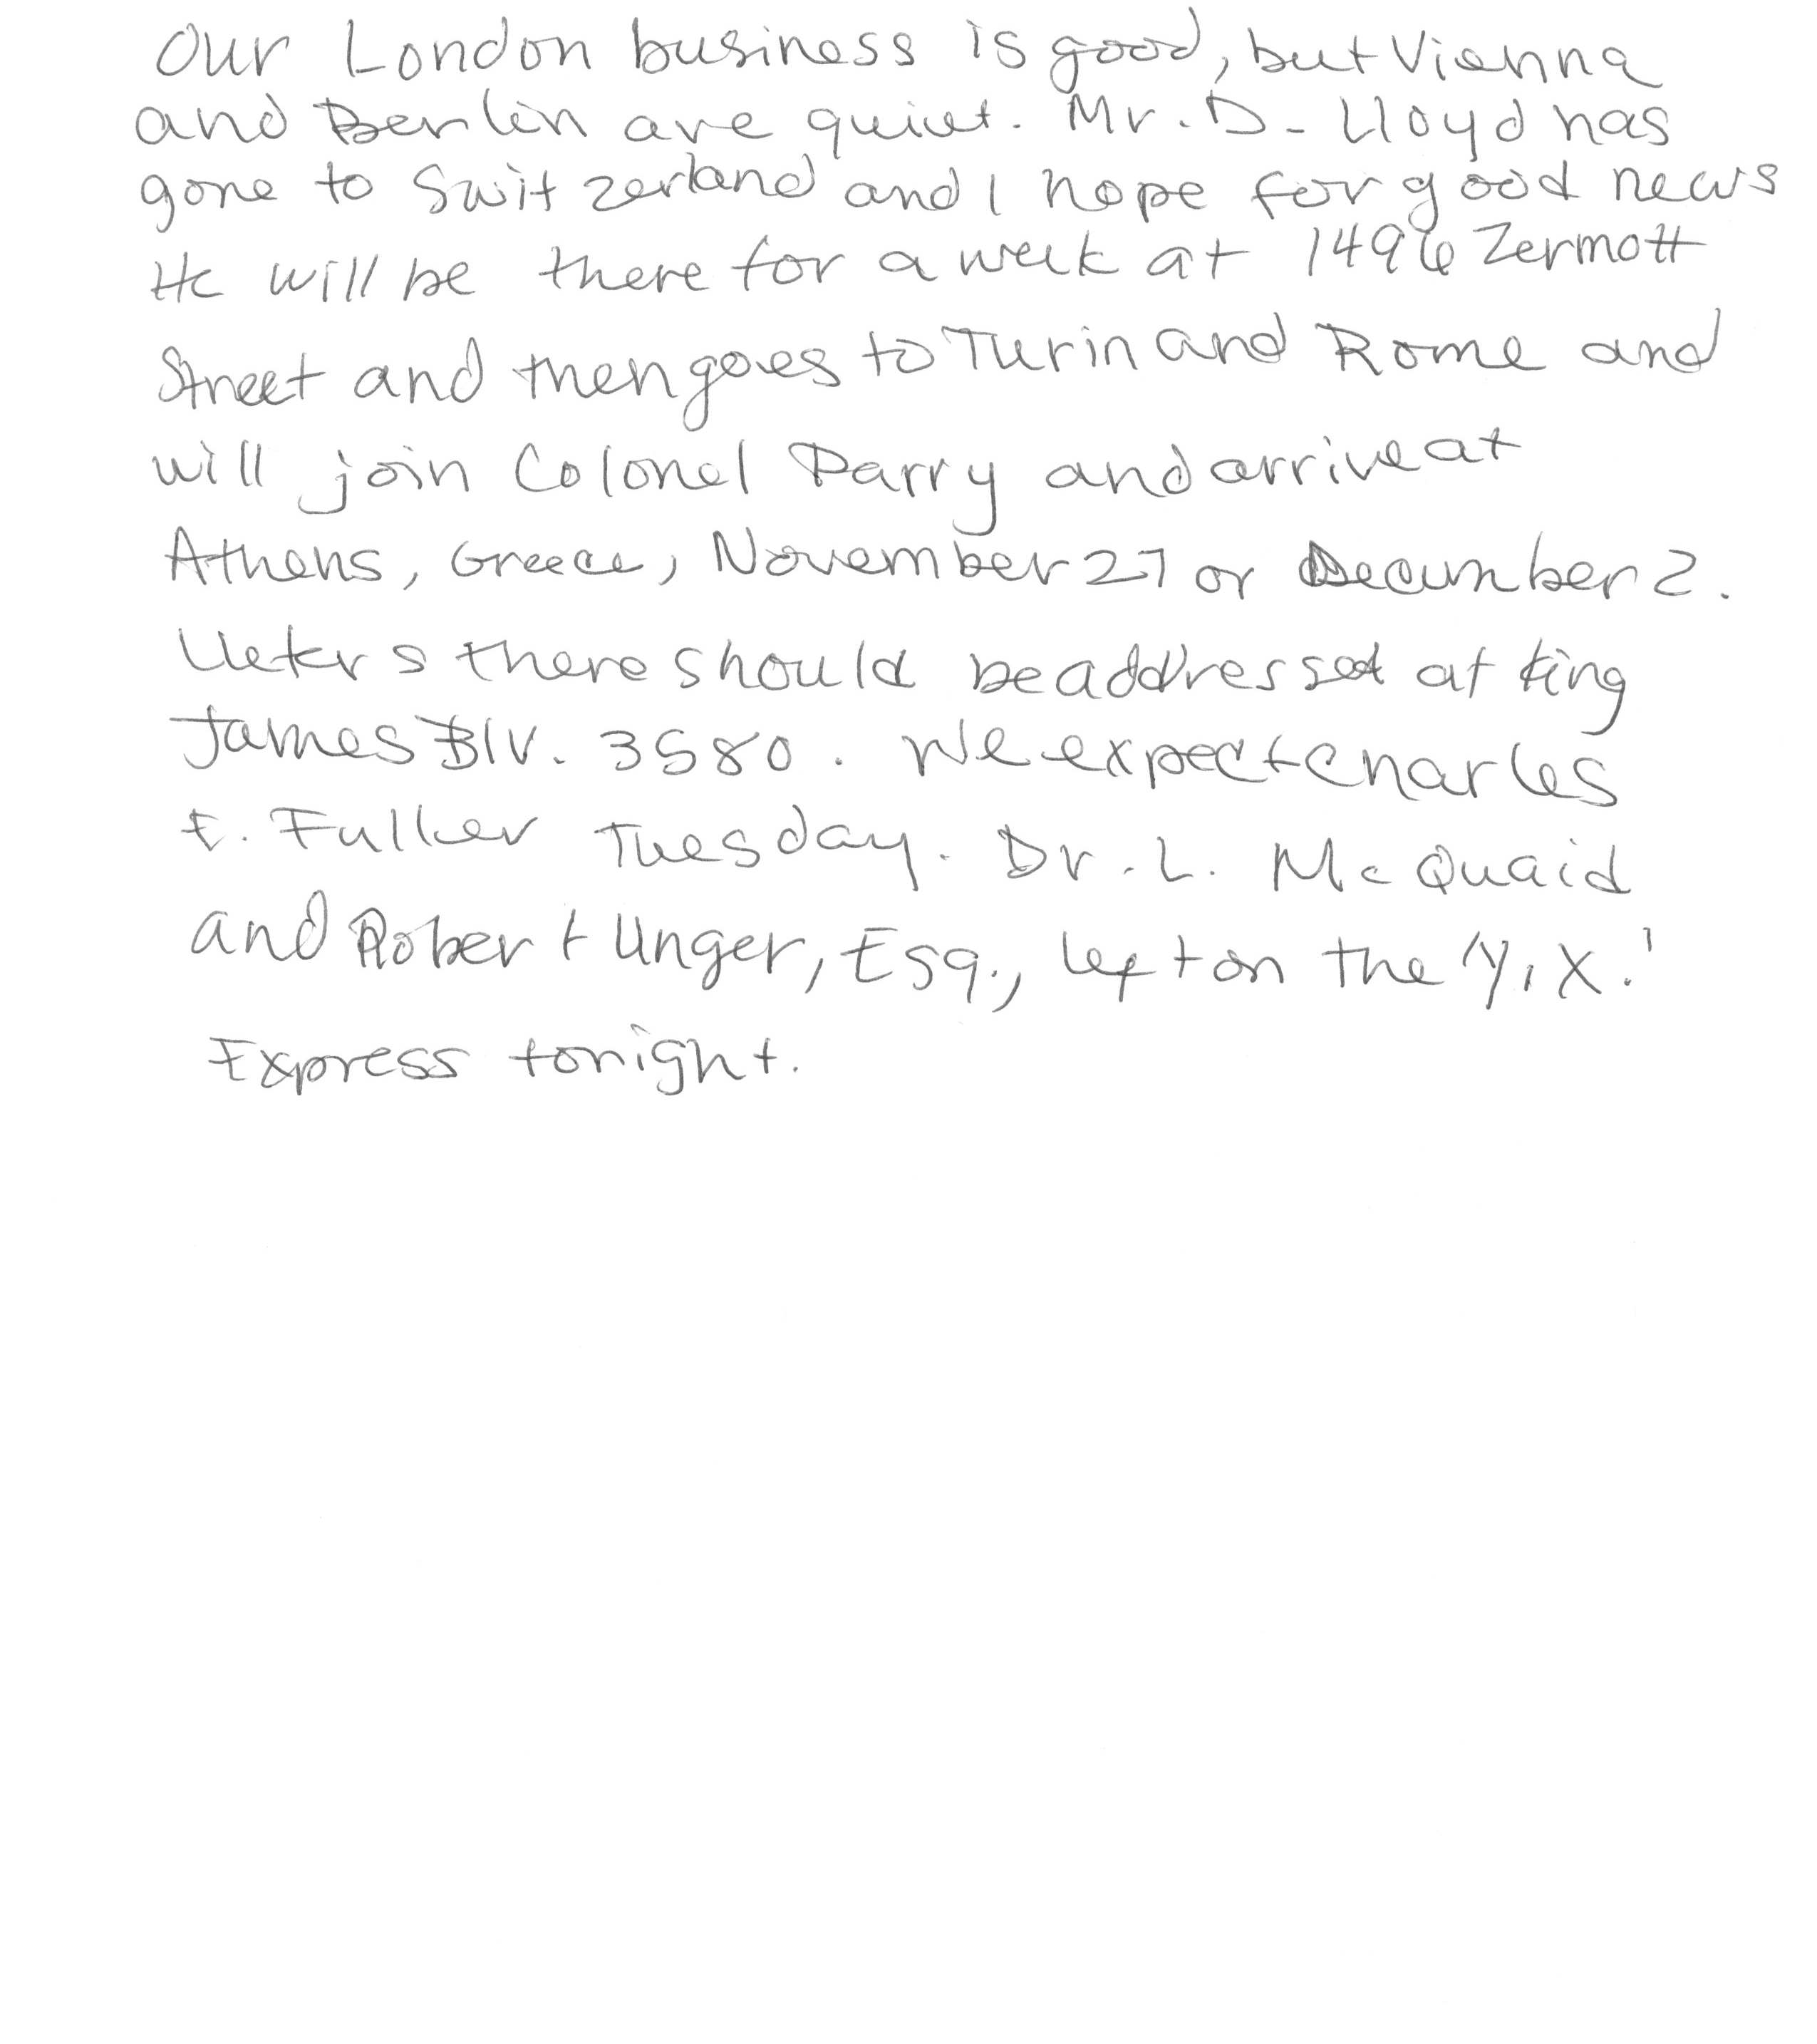 Our London business is good, but Vienna
and Berlin are quiet. Mr. D. Lloyd has
gone to Switzerland and I hope for good news
He will be there for a week at 1496 Zermott
Street and then goes to Turin and Rome and
will join Colonel Parry and arrive at
Athens, Greece, November 27 or December 2.
Letters there should be addressed at King
James Blv. 3580. We expect Charles
E. Fuller Tuesday. Dr. L. McQuaid
and Robert Unger, Esq., left on the "Y.X."
Express tonight.